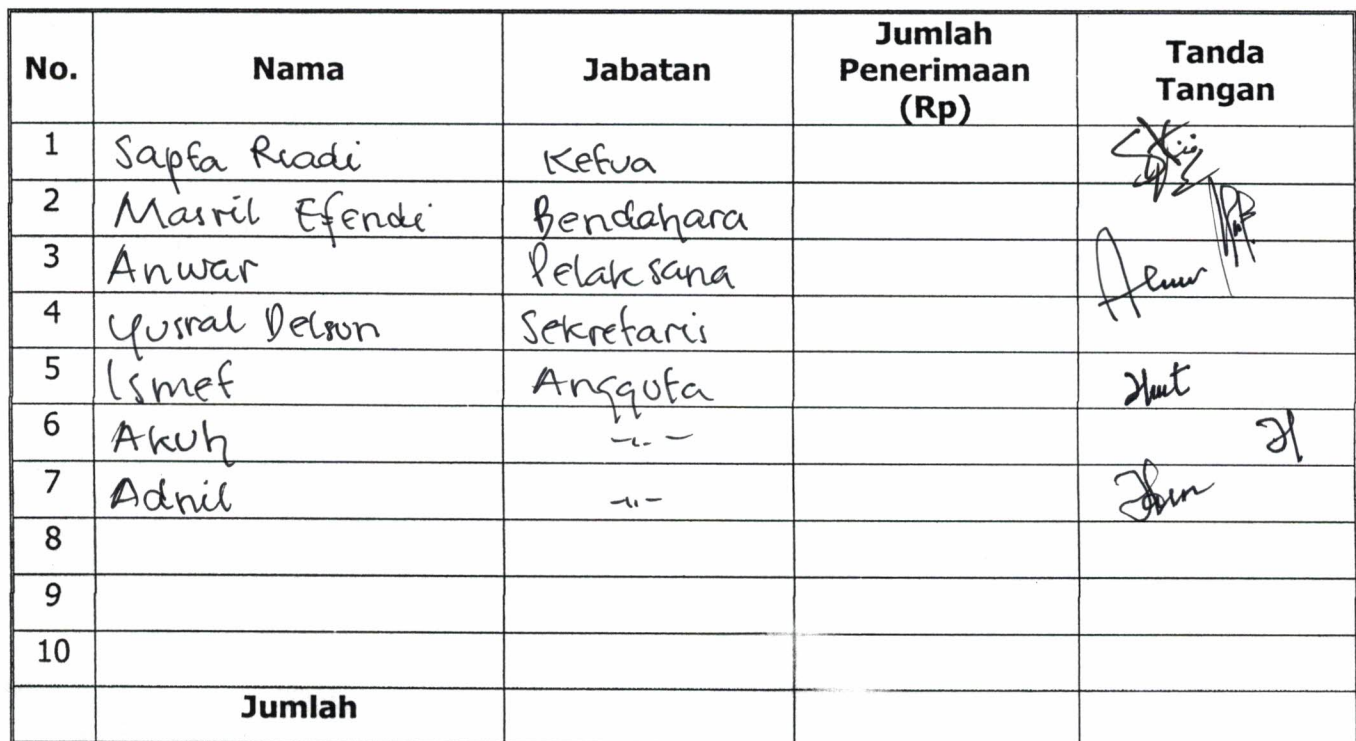 No. Nama Jabatan Jumlah Penerimaan (Rp) Tanda Tangan
1 Sapta Riadi Ketua
2 Masril Efendi Bendahara
3 Anwar Pelaksana
4 Yusral Delson Sekretaris
5 Ismet Anggota
6 Akuh -"-
7 Adnil -"-
8
9
10
Jumlah